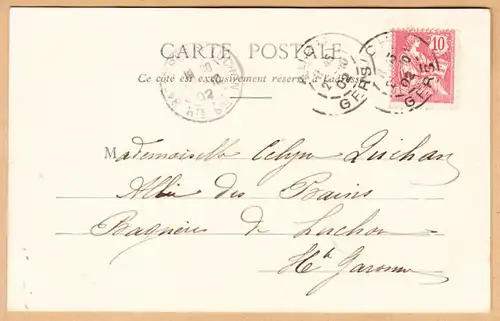 CARTE POSTALE
Ce côté est exclusivement réservé à l'adresse
10
GERS
02
GERS
02
02
Mademoiselle
Allée des Bains
Bagnères de Luchon
Hte Garonne